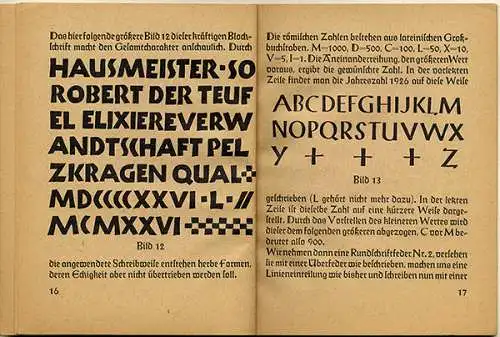 Das hier folgende größere Bild 12 dieser kräftigen Block-
schrift macht den Gesamtcharakter anschaulich. Durch
HAUSMEISTER·SO
ROBERT DER TEUF
EL ELIXIEREVERW
ANDTSCHAFT PEL
ZKRAGEN QUAL
MDCCCCXXVI·L·//
MCMXXVI
Bild 12
die angewendete Schreibweise entstehen herbe Formen,
deren Echigkeit aber nicht übertrieben werden soll.
16
Die römischen Zahlen bestehen aus lateinischen Groß-
buchstaben. M=1000, D=500, C=100, L=50, X=10,
V=5, I=1. Die Aneinanderreihung, den größeren Wert
voraus, ergibt die gewünschte Zahl. In der vorletzten
Zeile findet man die Jahreszahl 1926 auf diese Weise
ABCDEFGHIJKLM
NOPQRSTUVWX
Y + + + Z
Bild 13
geschrieben (L gehört nicht mehr dazu). In der letzten
Zeile ist dieselbe Zahl auf eine kürzere Weise darge-
stellt. Durch das Vorstellen des kleineren Wertes wird
dieser von dem folgenden größeren abgezogen. C vor M be-
deutet also 900.
Wir nehmen dann eine Rundschriftfeder Nr. 2, versehen
sie mit einer Überfeder wie beschrieben, machen uns eine
Linieneinteilung wie bisher und schreiben nun mit einer
17